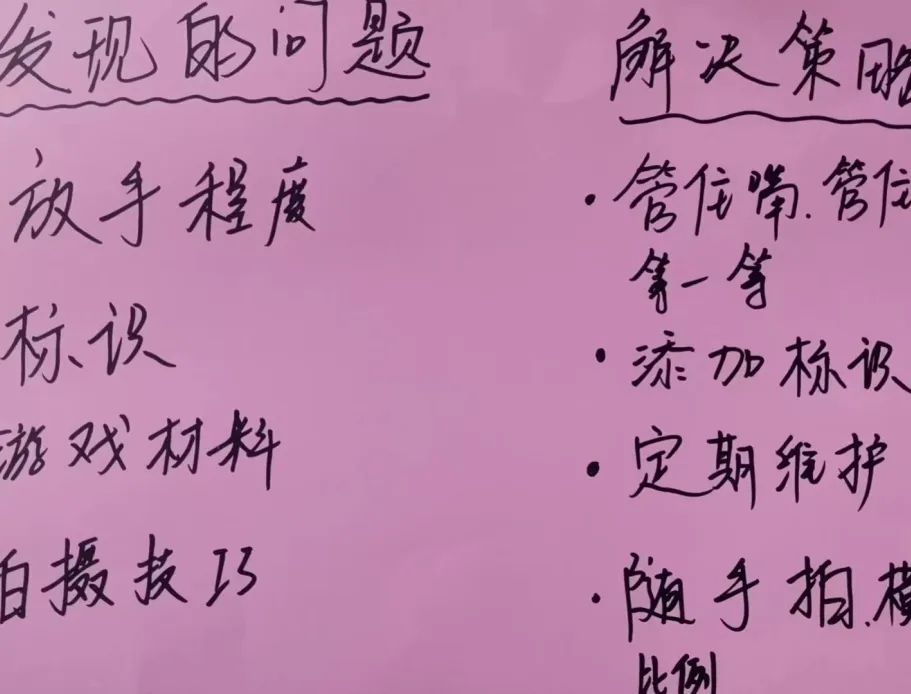 发现的问题
放手程度
标识
游戏材料
拍摄技巧
解决策略
管住嘴.管住
等一等
添加标识
定期维护
随手拍.横
比例